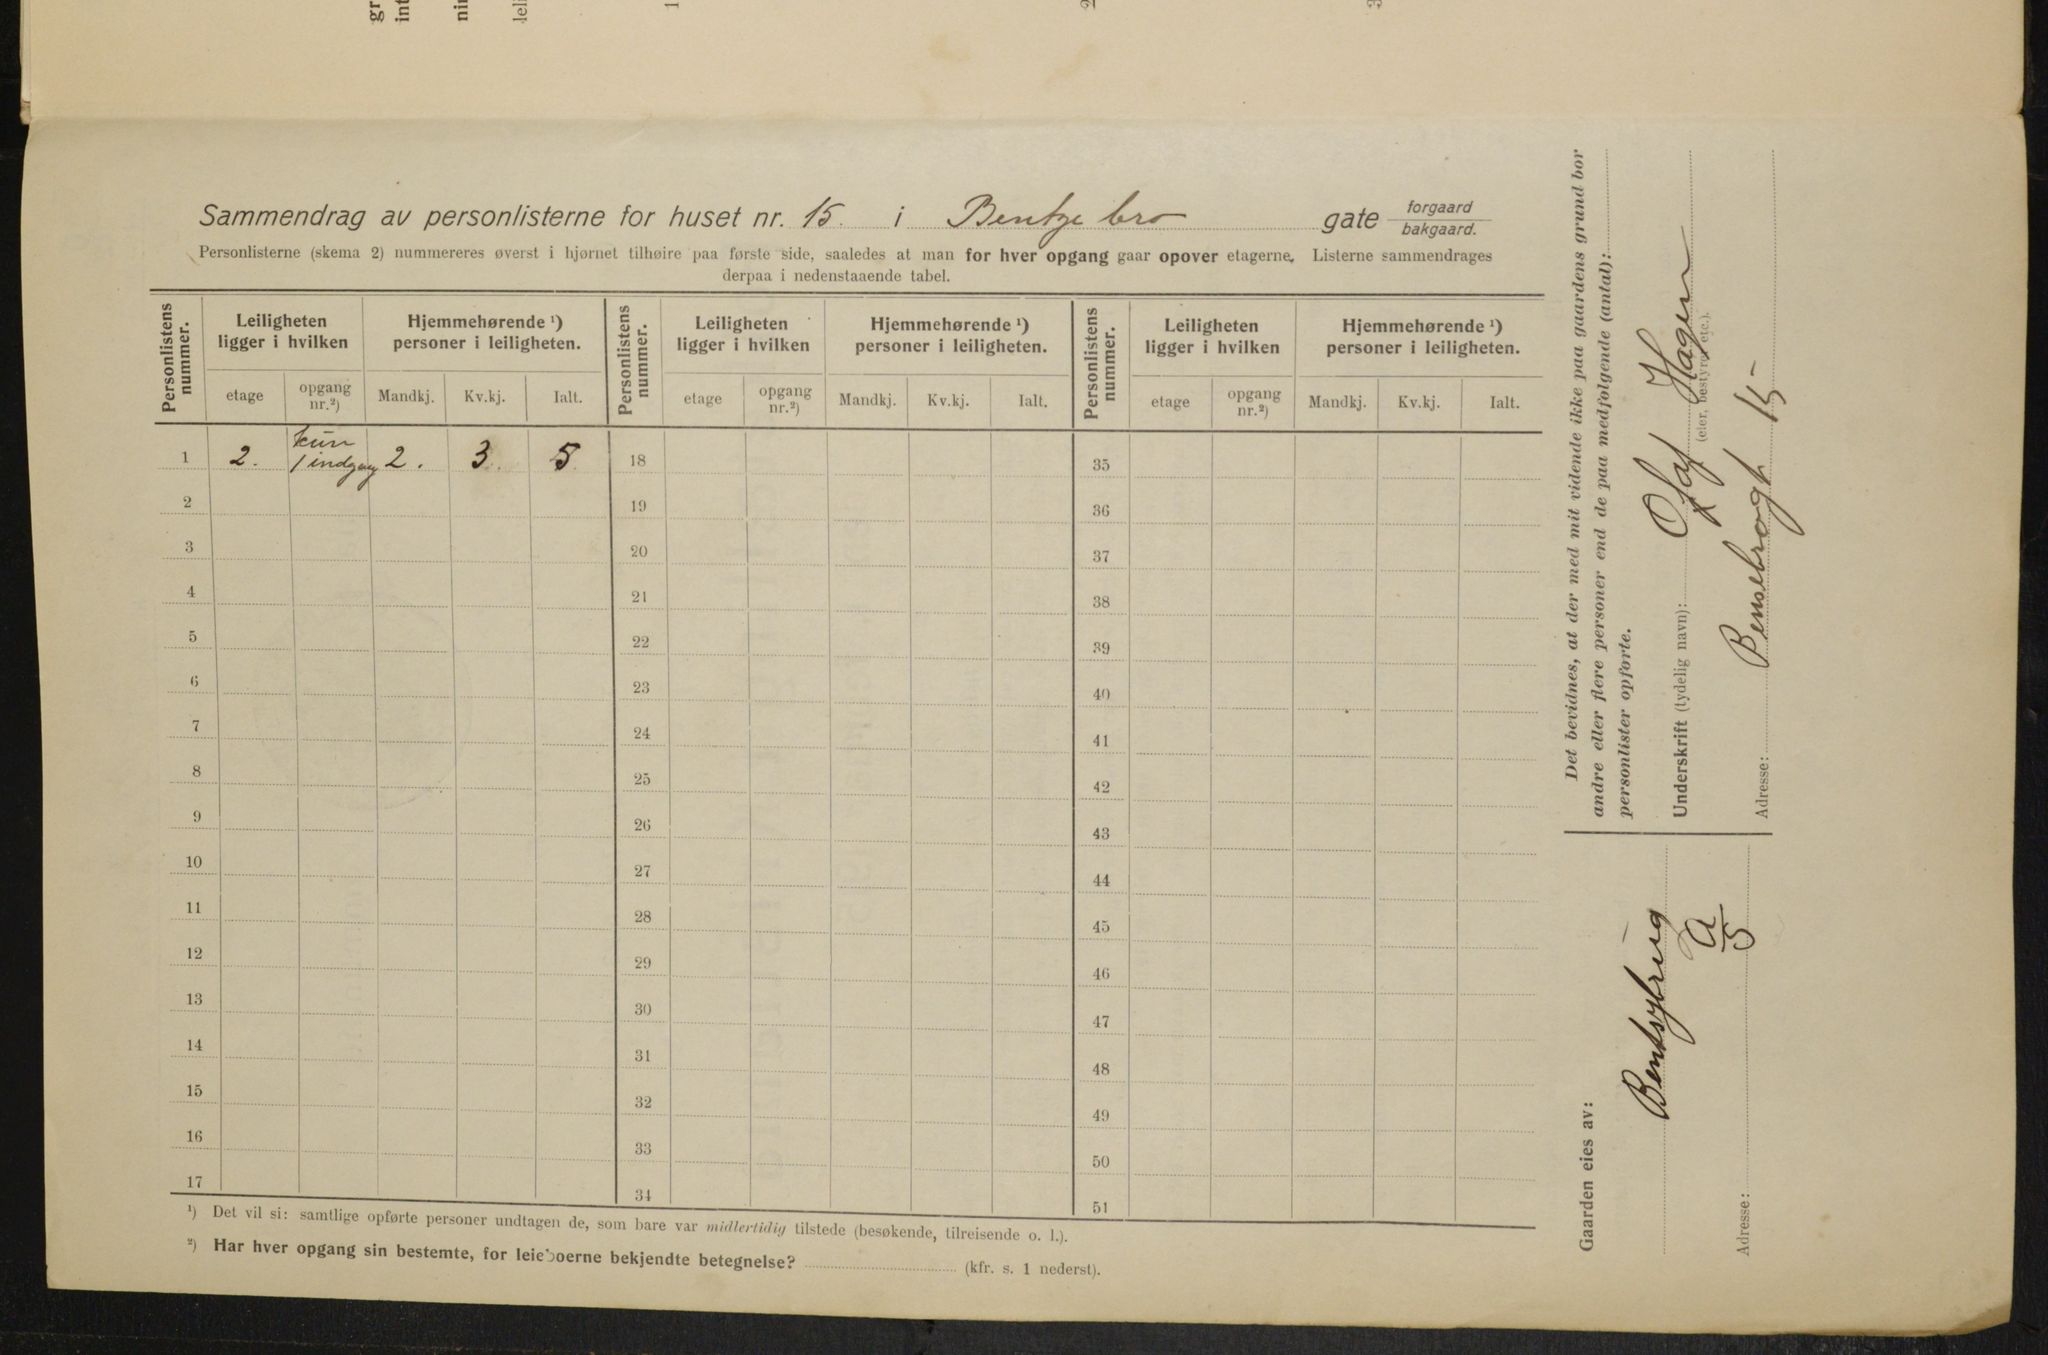 Sammendrag av personlisterne for huset nr. 15. i Bentzebro gate forgaard bakgaard.
Personlisterne (skema 2) nummereres øverst i hjørnet tilhøire paa første side, saaledes at man for hver opgang gaar opover etagerne. Listerne sammendrages
derpaa i nedenstaaende tabel.
Personlistens nummer. Leiligheten ligger i hvilken Hjemmehørende ¹) personer i leiligheten. Personlistens nummer. Leiligheten ligger i hvilken Hjemmehørende ¹) personer i leiligheten. Personlistens nummer. Leiligheten ligger i hvilken Hjemmehørende ¹) personer i leiligheten.
etage opgang nr.²) Mandkj. Kv.kj. Ialt. etage opgang nr.²) Mandkj. Kv.kj. Ialt. etage opgang nr.²) Mandkj. Kv.kj. Ialt.
1 2. kun 1 indgang 2. 3. 5 18 35
2 19 36
3 20 37
4 21 38
5 22 39
6 23 40
7 24 41
8 25 42
9 26 43
10 27 44
11 28 45
12 29 46
13 30 47
14 31 48
15 32 49
16 33 50
17 34 51
¹) Det vil si: samtlige opførte personer undtagen de, som bare var midlertidig tilstede (besøkende, tilreisende o. l.).
²) Har hver opgang sin bestemte, for leieboerne bekjendte betegnelse? (kfr. s. 1 nederst).
Det bevidnes, at der med mit vidende ikke paa gaardens grund bor
andre eller flere personer end de paa medfølgende (antal):
personlister opførte.
Underskrift (tydelig navn): Olaf Hagen
(eier, bestyrer etc.).
Adresse: Bensebrogt 15
Gaarden eies av:
Bentsebrug
A/S
Adresse: